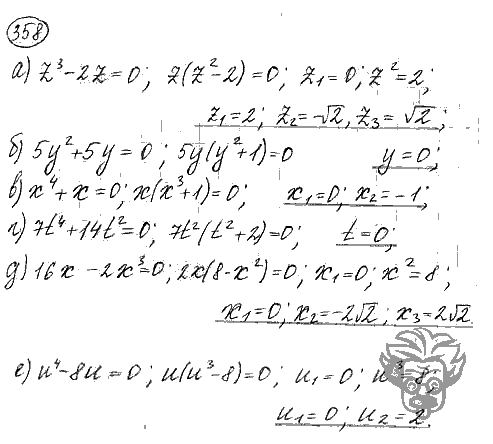 358
а) z³-2z=0; z(z²-2)=0; z₁=0; z²=2;
z₁=2; z₂=-√2, z₃=√2;
б) 5y²+5y=0; 5y(y²+1)=0 y=0;
в) x⁴+x=0; x(x³+1)=0; x₁=0; x₂=-1;
г) 7t⁴+14t²=0; 7t²(t²+2)=0; t=0;
д) 16x-2x³=0; 2x(8-x²)=0; x₁=0; x²=8;
x₁=0; x₂=-2√2; x₃=2√2.
е) u⁴-8u=0; u(u³-8)=0; u₁=0; u³=8;
u₁=0; u₂=2.